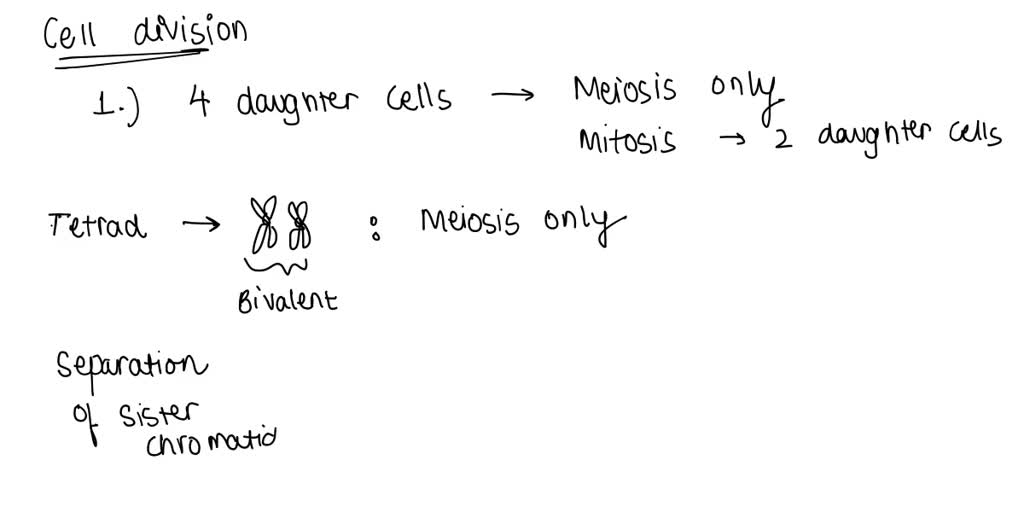 Cell division
1.) 4 daughter cells → Meiosis only
Mitosis → 2 daughter cells
Tetrad → : Meiosis only
Bivalent
Separation
of sister
chromatid